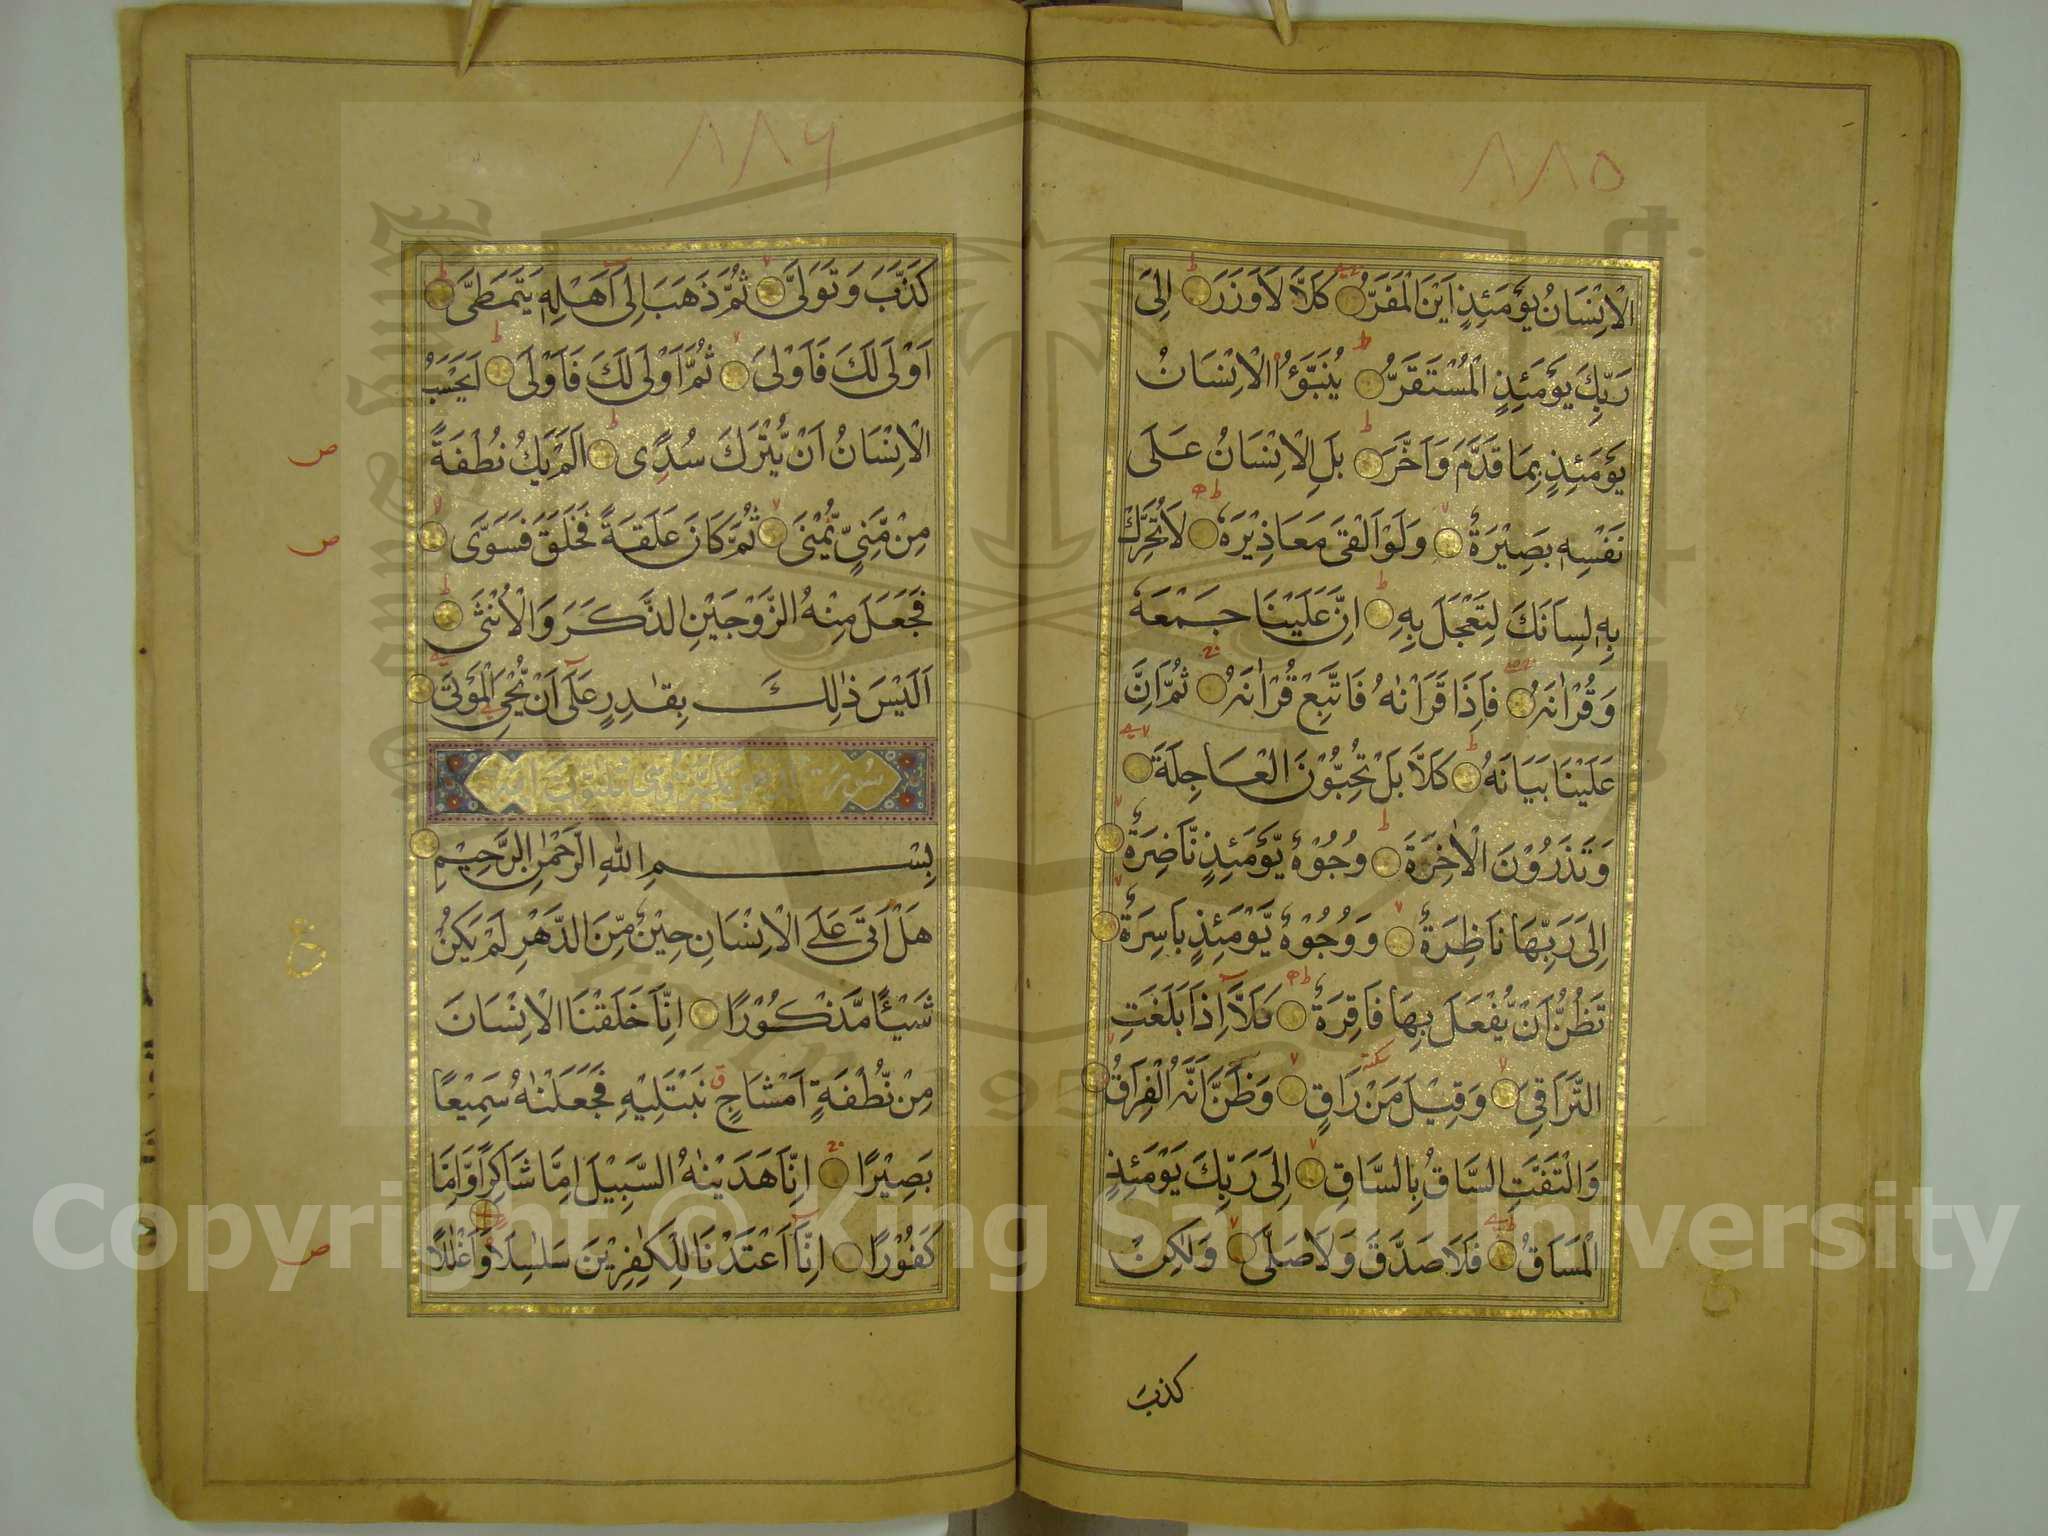 ٨٨٥
الْاِنْسَانُ يَوْمَئِذٍ اَيْنَ الْمَفَرُّ كَلَّا لَا وَزَرَ اِلىٰ
رَبِّكَ يَوْمَئِذٍ الْمُسْتَقَرُّ يُنَبَّؤُا الْاِنْسَانُ
يَوْمَئِذٍ بِمَا قَدَّمَ وَاَخَّرَ بَلِ الْاِنْسَانُ عَلَى
نَفْسِهٖ بَصِيْرَةٌ وَلَوْ اَلْقٰى مَعَاذِيْرَهٗ لَا تُحَرِّكْ
بِهٖ لِسَانَكَ لِتَعْجَلَ بِهٖ اِنَّ عَلَيْنَا جَمْعَهٗ
وَقُرْاٰنَهٗ فَاِذَا قَرَاْنٰهُ فَاتَّبِعْ قُرْاٰنَهٗ ثُمَّ اِنَّ
عَلَيْنَا بَيَانَهٗ كَلَّا بَلْ تُحِبُّوْنَ الْعَاجِلَةَ
وَتَذَرُوْنَ الْاٰخِرَةَ وُجُوْهٌ يَّوْمَئِذٍ نَّاضِرَةٌ
اِلىٰ رَبِّهَا نَاظِرَةٌ وَوُجُوْهٌ يَّوْمَئِذٍ بَاسِرَةٌ
تَظُنُّ اَنْ يُّفْعَلَ بِهَا فَاقِرَةٌ كَلَّا اِذَا بَلَغَتِ
التَّرَاقِيَ وَقِيْلَ مَنْ رَاقٍ وَظَنَّ اَنَّهُ الْفِرَاقُ
وَالْتَفَّتِ السَّاقُ بِالسَّاقِ اِلىٰ رَبِّكَ يَوْمَئِذٍ
الْمَسَاقُ فَلَا صَدَّقَ وَلَا صَلّٰى وَلٰكِنْ
كذبَ
٨٨٦
كَذَّبَ وَتَوَلّٰى ثُمَّ ذَهَبَ اِلىٰ اَهْلِهٖ يَتَمَطّٰى
اَوْلٰى لَكَ فَاَوْلٰى ثُمَّ اَوْلٰى لَكَ فَاَوْلٰى اَيَحْسَبُ
الْاِنْسَانُ اَنْ يُّتْرَكَ سُدًى اَلَمْ يَكُ نُطْفَةً
مِنْ مَّنِيٍّ يُّمْنٰى ثُمَّ كَانَ عَلَقَةً فَخَلَقَ فَسَوّٰى
فَجَعَلَ مِنْهُ الزَّوْجَيْنِ الذَّكَرَ وَالْاُنْثٰى
اَلَيْسَ ذٰلِكَ بِقٰدِرٍ عَلٰى اَنْ يُّحْيِ الْمَوْتٰى
بِسْمِ اللهِ الرَّحْمٰنِ الرَّحِيْمِ
هَلْ اَتٰى عَلَى الْاِنْسَانِ حِيْنٌ مِّنَ الدَّهْرِ لَمْ يَكُنْ
شَيْئًا مَّذْكُوْرًا اِنَّا خَلَقْنَا الْاِنْسَانَ
مِنْ نُّطْفَةٍ اَمْشَاجٍ نَبْتَلِيْهِ فَجَعَلْنٰهُ سَمِيْعًا
بَصِيْرًا اِنَّا هَدَيْنٰهُ السَّبِيْلَ اِمَّا شَاكِرًا وَّاِمَّا
كَفُوْرًا اِنَّا اَعْتَدْنَا لِلْكٰفِرِيْنَ سَلٰسِلَا۟ وَاَغْلٰلًا
Copyright © King Saud University